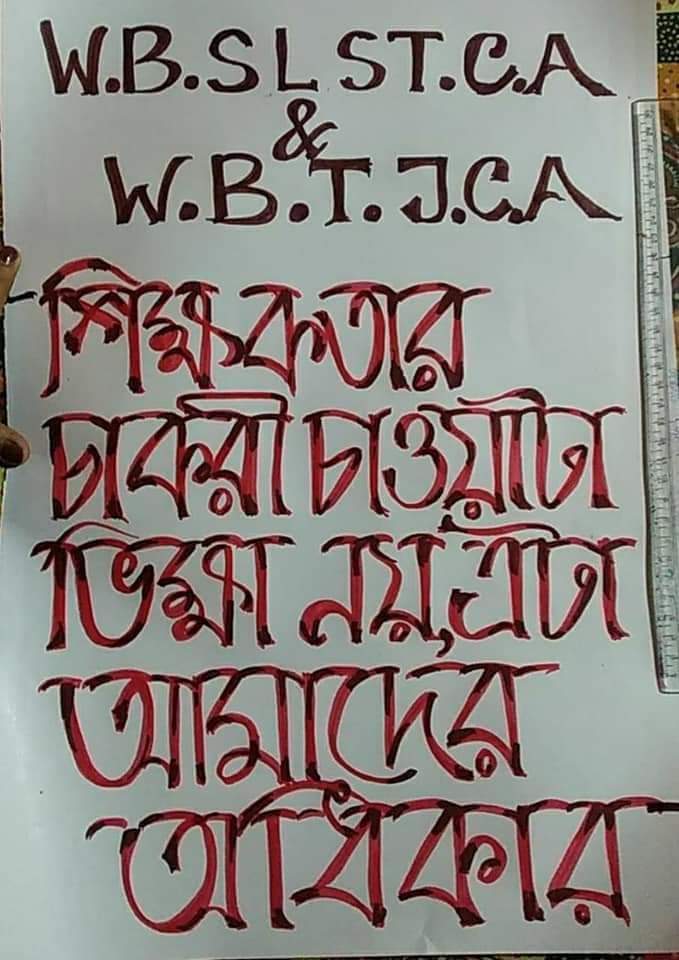 W.B.S L ST.C.A
&
W.B.T.J.C.A
শিক্ষকতার
চাকরী চাওয়াটা
ভিক্ষা নয়,এটা
আমাদের
অধিকার